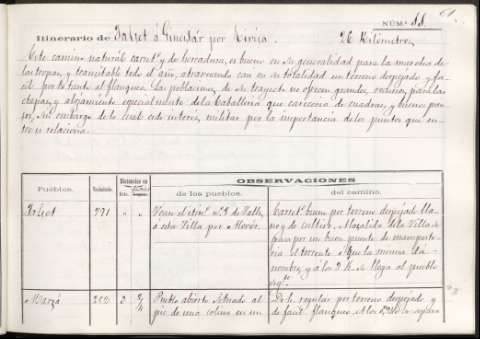 61
NÚM.º 88.
Itinerario de Sabet á Ginestár por Tivisa. 26 Kilómetros
Este camino natural carret.º y de herradura, es bueno en su generalidad para la marcha de
las tropas, y transitable todo el año, atravesando casi en su totalidad un terreno despejado y fá-
cil por lo tanto al flanqueo. Las poblaciones de su trayecto no ofrecen grandes recursos para las
etapas, y alojamiento especialmente de la Caballeria que careceria de cuadras, y buenos pien-
sos, sin embargo de lo cual es de interés militar por la importancia de los puntos que en-
tre si relaciona.
Pueblos. Vecindario. Distancias en OBSERVACIONES
de los pueblos. del camino.
271 " " Vease el itin.º nº 3 de Valls Carret.º bueno por terreno despejado lla-
á esta Villa por no y de cultivo. A la salida de la Villa se
pasa por un buen puente de mamposte-
ria el torrente que la misma de-
nombre, y á los 2 K. se llega al pueblo
sig.te
Marsá 252 2 2 Pueblo abierto situado al De h. regular por terreno despejado y
pie de una colina en un de facil flanqueo. A los